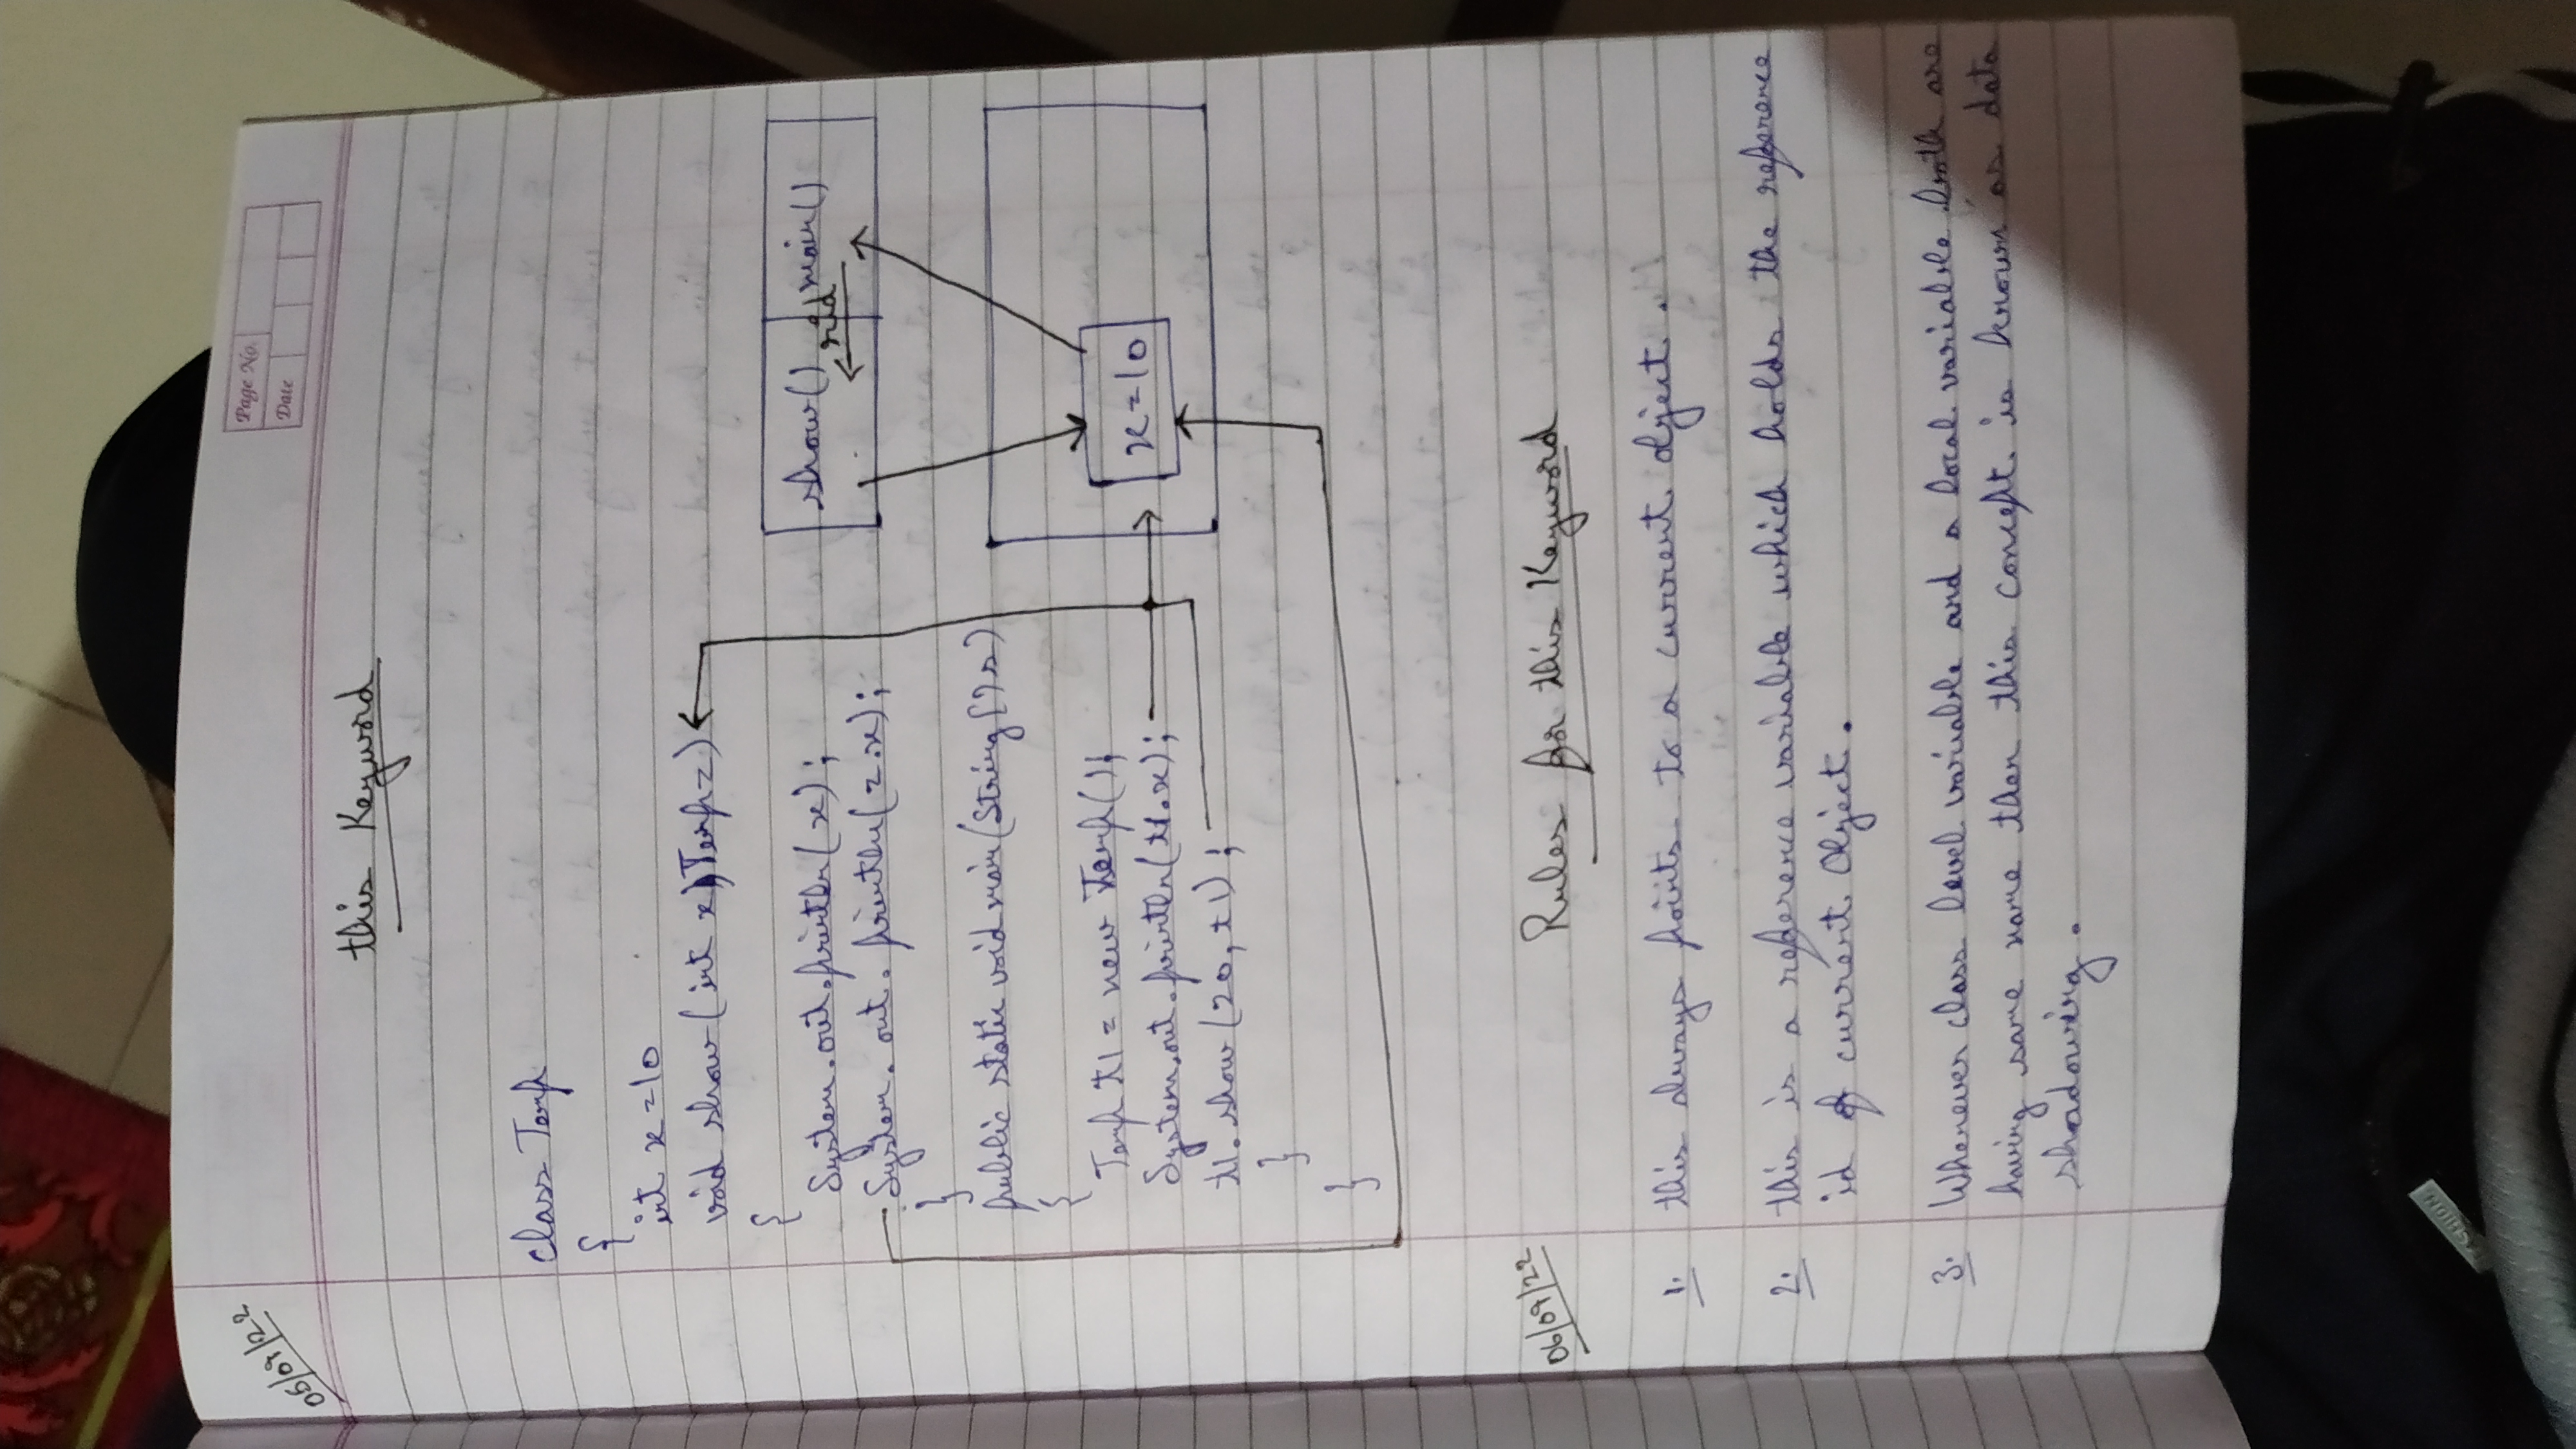 05/09/22
Page No.
Date
this Keyword
class Temp
{
int x=10
void show(int x, Temp z)
{
System.out.println(x);
System.out.println(z.x);
}
public static void main(String[] s)
{
Temp t1 = new Temp();
System.out.println(t1.x);
t1.show(20, t1);
}
}
show() main()
rid
x=10
06/09/22
Rules for this Keyword
1. this always points to a current object.
2. this is a reference variable which holds the reference
id of current Object.
3. Whenever class level variable and a local variable both are
having same name then this concept is known as data
shadowing.
FASHION